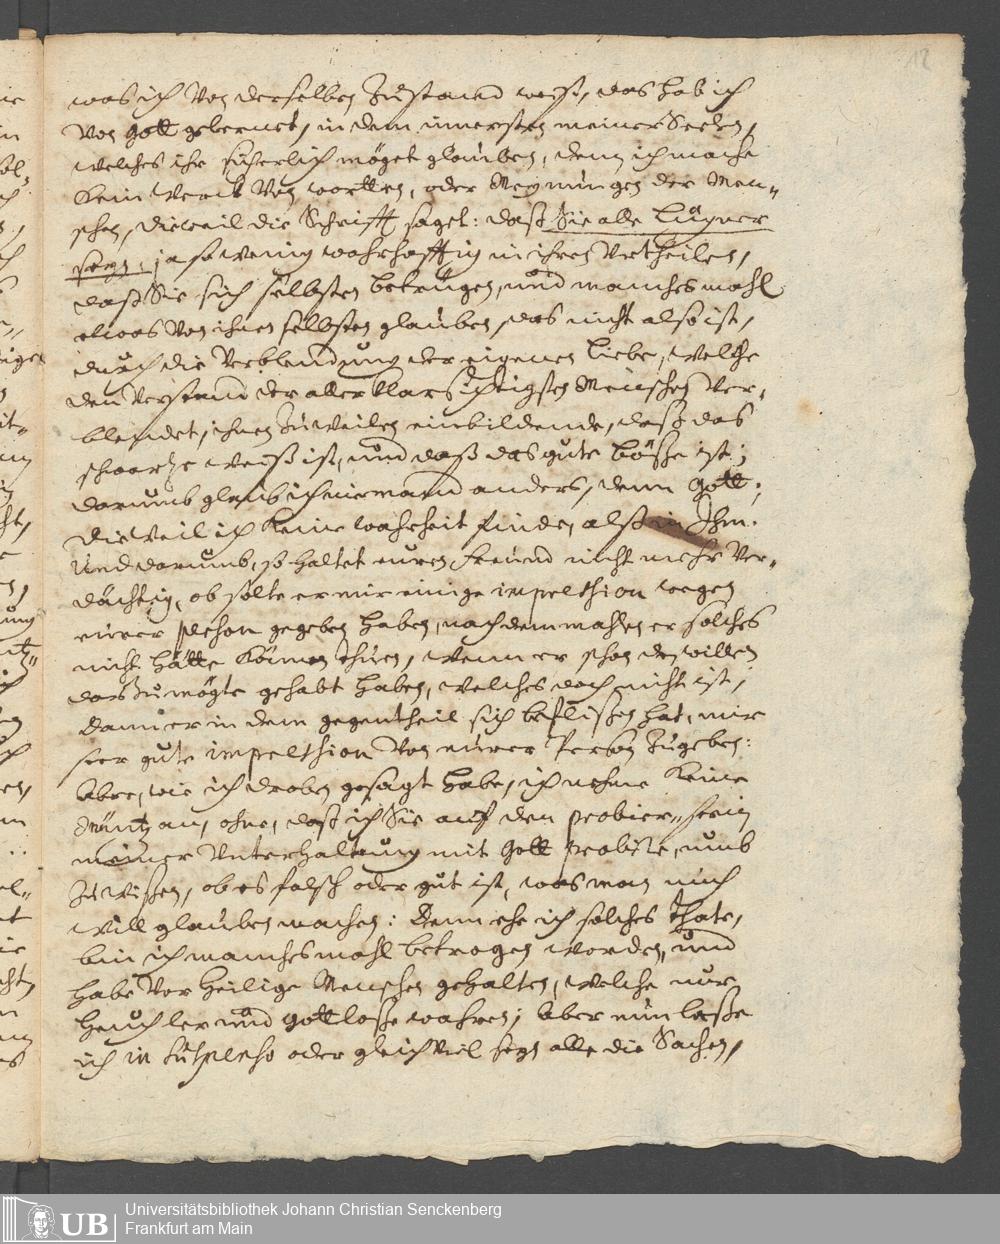 12
was ich von derselben Zustand weiß, das hab ich
von Gott gelernet, in dem innersten meiner Seelen,
welches ihr sicherlich möget glauben, denn ich mache
kein werck von wortten, oder Meynungen der Men„
schen, dieweil die Schrifft saget: daß Sie alle Lügner
seyn; ja so wenig wahrhafftig in ihren Urtheilen,
daß Sie sich selbsten betrügen, und manches mahl
etwas von ihnen selbsten glauben, das nicht also ist,
durch die Verblendung der eigenen Liebe, welche
den Verstand der aller klarsichtigsten Menschen ver„
blendet, ihnen zuweilen einbildende, daß das
schwartze weiß ist, und daß das gute böße ist;
darumb glaub ich niemand anders, denn Gott;
dieweil ich keine wahrheit finde, alß in Ihm.
Und darumb, so haltet euren Freund nicht mehr ver„
dächtig, ob solte er mir einige impression wegen
eurer person gegeben haben, nach dem mahlen er solches
nicht hätte können thuen, wenn er schon den willen
darzu mögte gehabt haben, welches doch nicht ist,
dann er in dem gegentheil sich beflißen hat, mir
seer gute impression von eurer Person zugeben:
Aber, wie ich droben gesagt habe, ich nehme keine
Müntz an, ohne, daß ich Sie auf den probier„stein
meiner Unterhaltung mit Gott probire, umb
zu wißen, ob es falsch oder gut ist, was man mich
will glauben machen: Denn ehe ich solches thate,
bin ich manches mahl betrogen worden, und
habe vor heilige Menschen gehalten, welche nur
heuchler und gottlose wahren; Aber nun laße
ich in oder gleich viel seyn alle die Sachen,
UB
Universitätsbibliothek Johann Christian Senckenberg
Frankfurt am Main